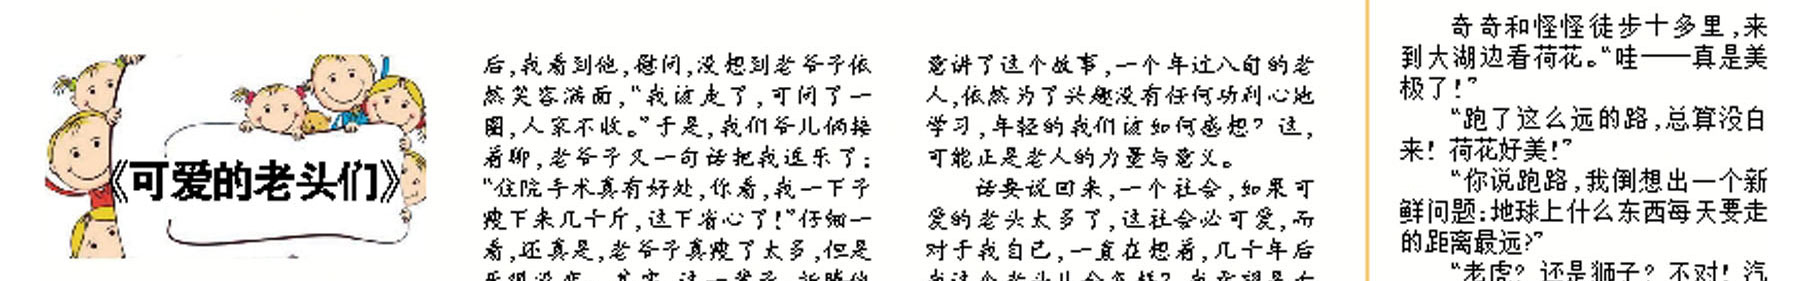 《可爱的老头们》
后,我看到他,慰问,没想到老爷子依
然笑容满面,“我该走了,可问了一
圈,人家不收。”于是,我们爷儿俩接
着聊,老爷子又一句话把我逗乐了:
“住院手术真有好处,你看,我一下子
瘦下来几十斤,这下省心了!”仔细一
看,还真是,老爷子真瘦了太多,但是
意讲了这个故事,一个年过八旬的老
人,依然为了兴趣没有任何功利心地
学习,年轻的我们该如何感想?这,
可能正是老人的力量与意义。
话要说回来,一个社会,如果可
爱的老头太多了,这社会必可爱,而
对于我自己,一直在想着,几十年后
奇奇和怪怪徒步十多里,来
到大湖边看荷花。“哇——真是美
极了!”
“跑了这么远的路,总算没白
来!荷花好美!”
“你说跑路,我倒想出一个新
鲜问题:地球上什么东西每天要走
的距离最远?”
“老虎?还是狮子?不对!汽